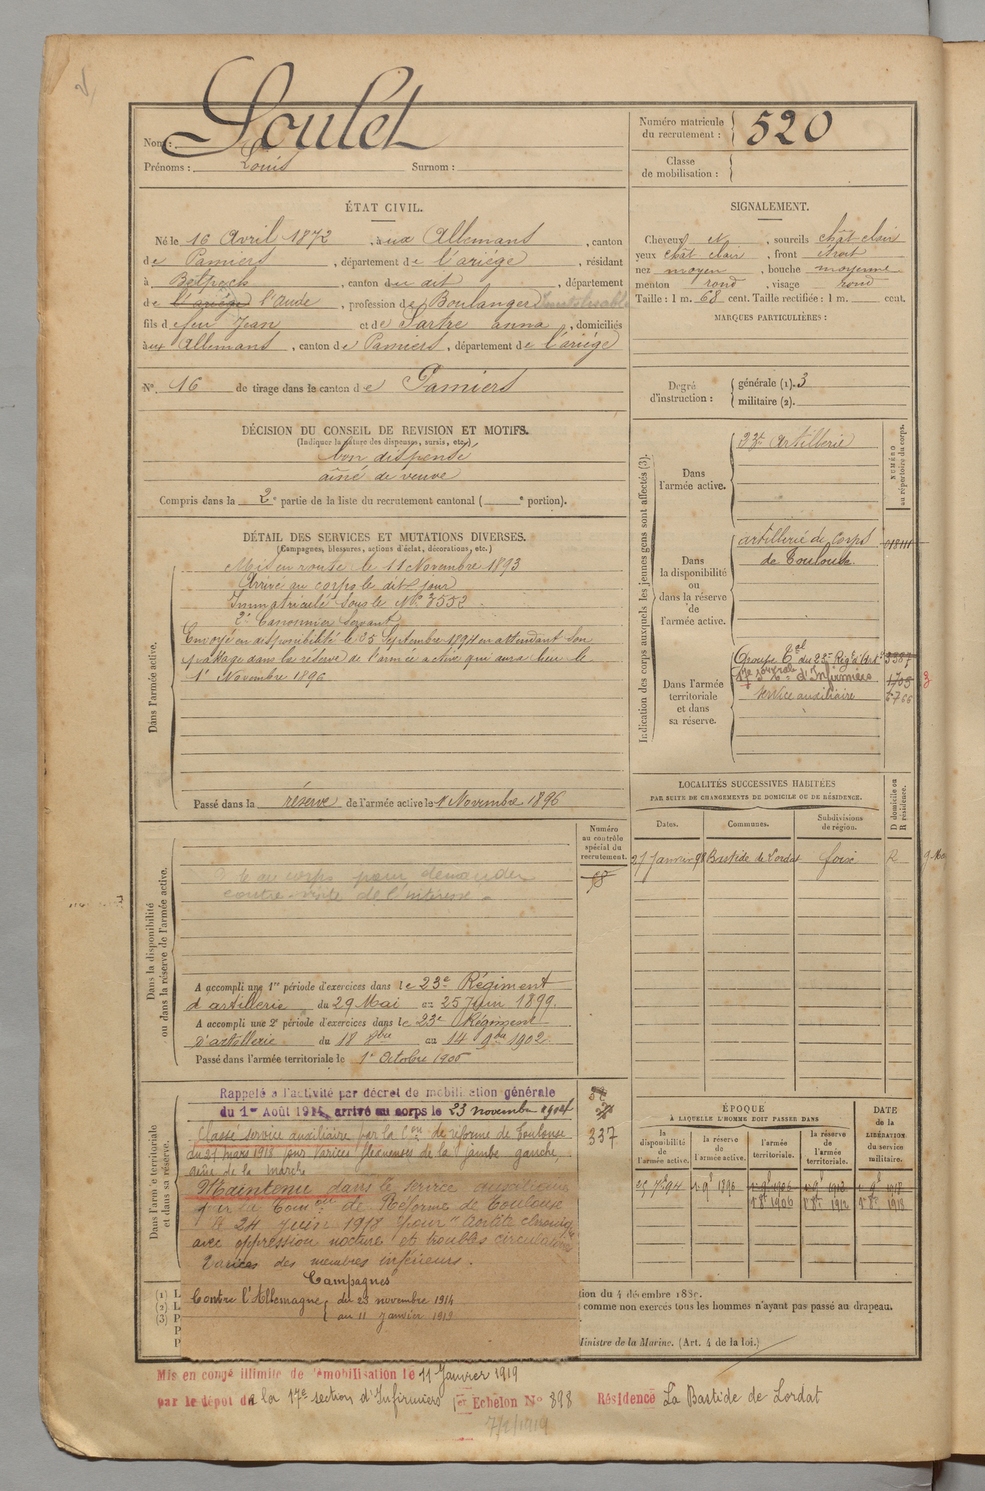 Nom : Soulet
Prénoms : Louis Surnom :
Numéro matricule du recrutement : 520
Classe de mobilisation :
ÉTAT CIVIL.
Né le 16 Avril 1872, à aux Allemans, canton
de Pamiers, département de l'ariége, résidant
à Belpech, canton du dit, département
de l'ariége l'aude, profession de Boulanger
fils de feu Jean et de Sartre anna, domiciliés
à aux Allemans, canton de Pamiers, département de l'ariége
N° 16 de tirage dans le canton de Pamiers
SIGNALEMENT.
Cheveux , sourcils chât-clair
yeux chât clair, front étroit
nez moyen, bouche moyenne
menton rond, visage rond
Taille : 1 m. 68 cent. Taille rectifiée : 1 m. cent.
MARQUES PARTICULIÈRES :
Degré d'instruction : générale (1). 3
militaire (2).
DÉCISION DU CONSEIL DE REVISION ET MOTIFS.
(Indiquer la nature des dispenses, sursis, etc.)
bon dispensé
aîné de veuve
Compris dans la 2e partie de la liste du recrutement cantonal ( e portion).
DÉTAIL DES SERVICES ET MUTATIONS DIVERSES.
(Campagnes, blessures, actions d'éclat, décorations, etc.)
Dans l'armée active.
Mis en route le 11 Novembre 1893
Arrivé au corps le dit jour
Immatriculé sous le N° 3552.
2e Canonnier servant
Envoyé en disponibilité le 25 Septembre 1894 en attendant son
passage dans la réserve de l'armée active qui aura lieu le
1er Novembre 1896
Passé dans la réserve de l'armée active le 1 Novembre 1896
Indication des corps auxquels les jeunes gens sont affectés (3).
NUMÉRO au répertoire du corps.
Dans l'armée active.
23e Artillerie
Dans la disponibilité ou dans la réserve de l'armée active.
artillerie de corps
de Toulouse
Dans l'armée territoriale et dans sa réserve.
Groupe du 23e Régt d'Art
17e Son d'Infirmiers
service auxiliaire
LOCALITÉS SUCCESSIVES HABITÉES
PAR SUITE DE CHANGEMENTS DE DOMICILE OU DE RÉSIDENCE.
D domicile ou R résidence.
Dates. Communes. Subdivisions de région.
27 Janvier 98 Bastide de Lordat foix R
Numéro au contrôle spécial du recrutement.
Dans la disponibilité ou dans la réserve de l'armée active.
au corps pour demander
contre-visite de l'intéressé.
A accompli une 1re période d'exercices dans le 23e Régiment
d'artillerie du 29 Mai au 25 Juin 1899
A accompli une 2e période d'exercices dans le 23e Régiment
d'artillerie du 18 8bre au 14 9bre 1902
Passé dans l'armée territoriale le 1er Octobre 1906
Dans l'armée territoriale et dans sa réserve.
Rappelé à l'activité par décret de mobilisation générale
du 1er Août 1914, arrivé au corps le 23 novembre 1914
337
Classé service auxiliaire par la Con de réforme de Toulouse
du 27 mars 1918 pour varices flexueuses de la jambe gauche,
gêne de la marche
Maintenu dans le service auxiliaire
par la Comon de Réforme de Toulouse
le 24 Juin 1918 pour "Aortite chronique
avec oppression nocturne et troubles circulatoires
Varices des membres inférieurs.
Campagnes
Contre l'Allemagne, du 23 novembre 1914
au 11 Janvier 1919
ÉPOQUE
À LAQUELLE L'HOMME DOIT PASSER DANS
DATE de la LIBÉRATION du service militaire.
la disponibilité de l'armée active. la réserve de l'armée active. l'armée territoriale. la réserve de l'armée territoriale.
25 7bre 94 1er 9bre 1896 1er 9bre 1906 1er 9bre 1912 1er 9bre 1918
1er 8bre 1906 1er 8bre 1912 1er 8bre 1918
(1) L
(2) L
(3) P
P
P
tion du 4 décembre 1889.
comme non exercés tous les hommes n'ayant pas passé au drapeau.
Ministre de la Marine. (Art. 4 de la loi.)
Mis en congé illimité de démobilisation le 11 Janvier 1919
par le dépôt de la 17e section d'Infirmiers Echelon N° 898 Résidence La Bastide de Lordat